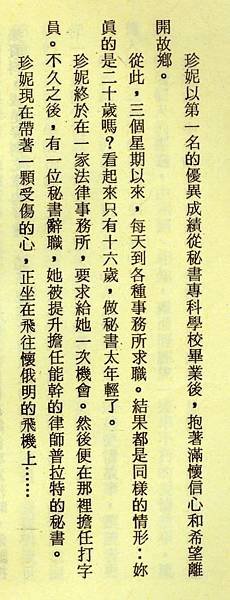 珍妮以第一名的優異成績從秘書專科學校畢業後，抱著滿懷信心和希望離
開故鄉。
從此，三個星期以來，每天到各種事務所求職。結果都是同樣的情形：妳
眞的是二十歲嗎？看起來只有十六歲，做秘書太年輕了。
珍妮終於在一家法律事務所，要求給她一次機會。然後便在那裡擔任打字
員。不久之後，有一位秘書辭職，她被提升擔任能幹的律師普拉特的秘書。
珍妮現在帶著一顆受傷的心，正坐在飛往懷俄明的飛機上……